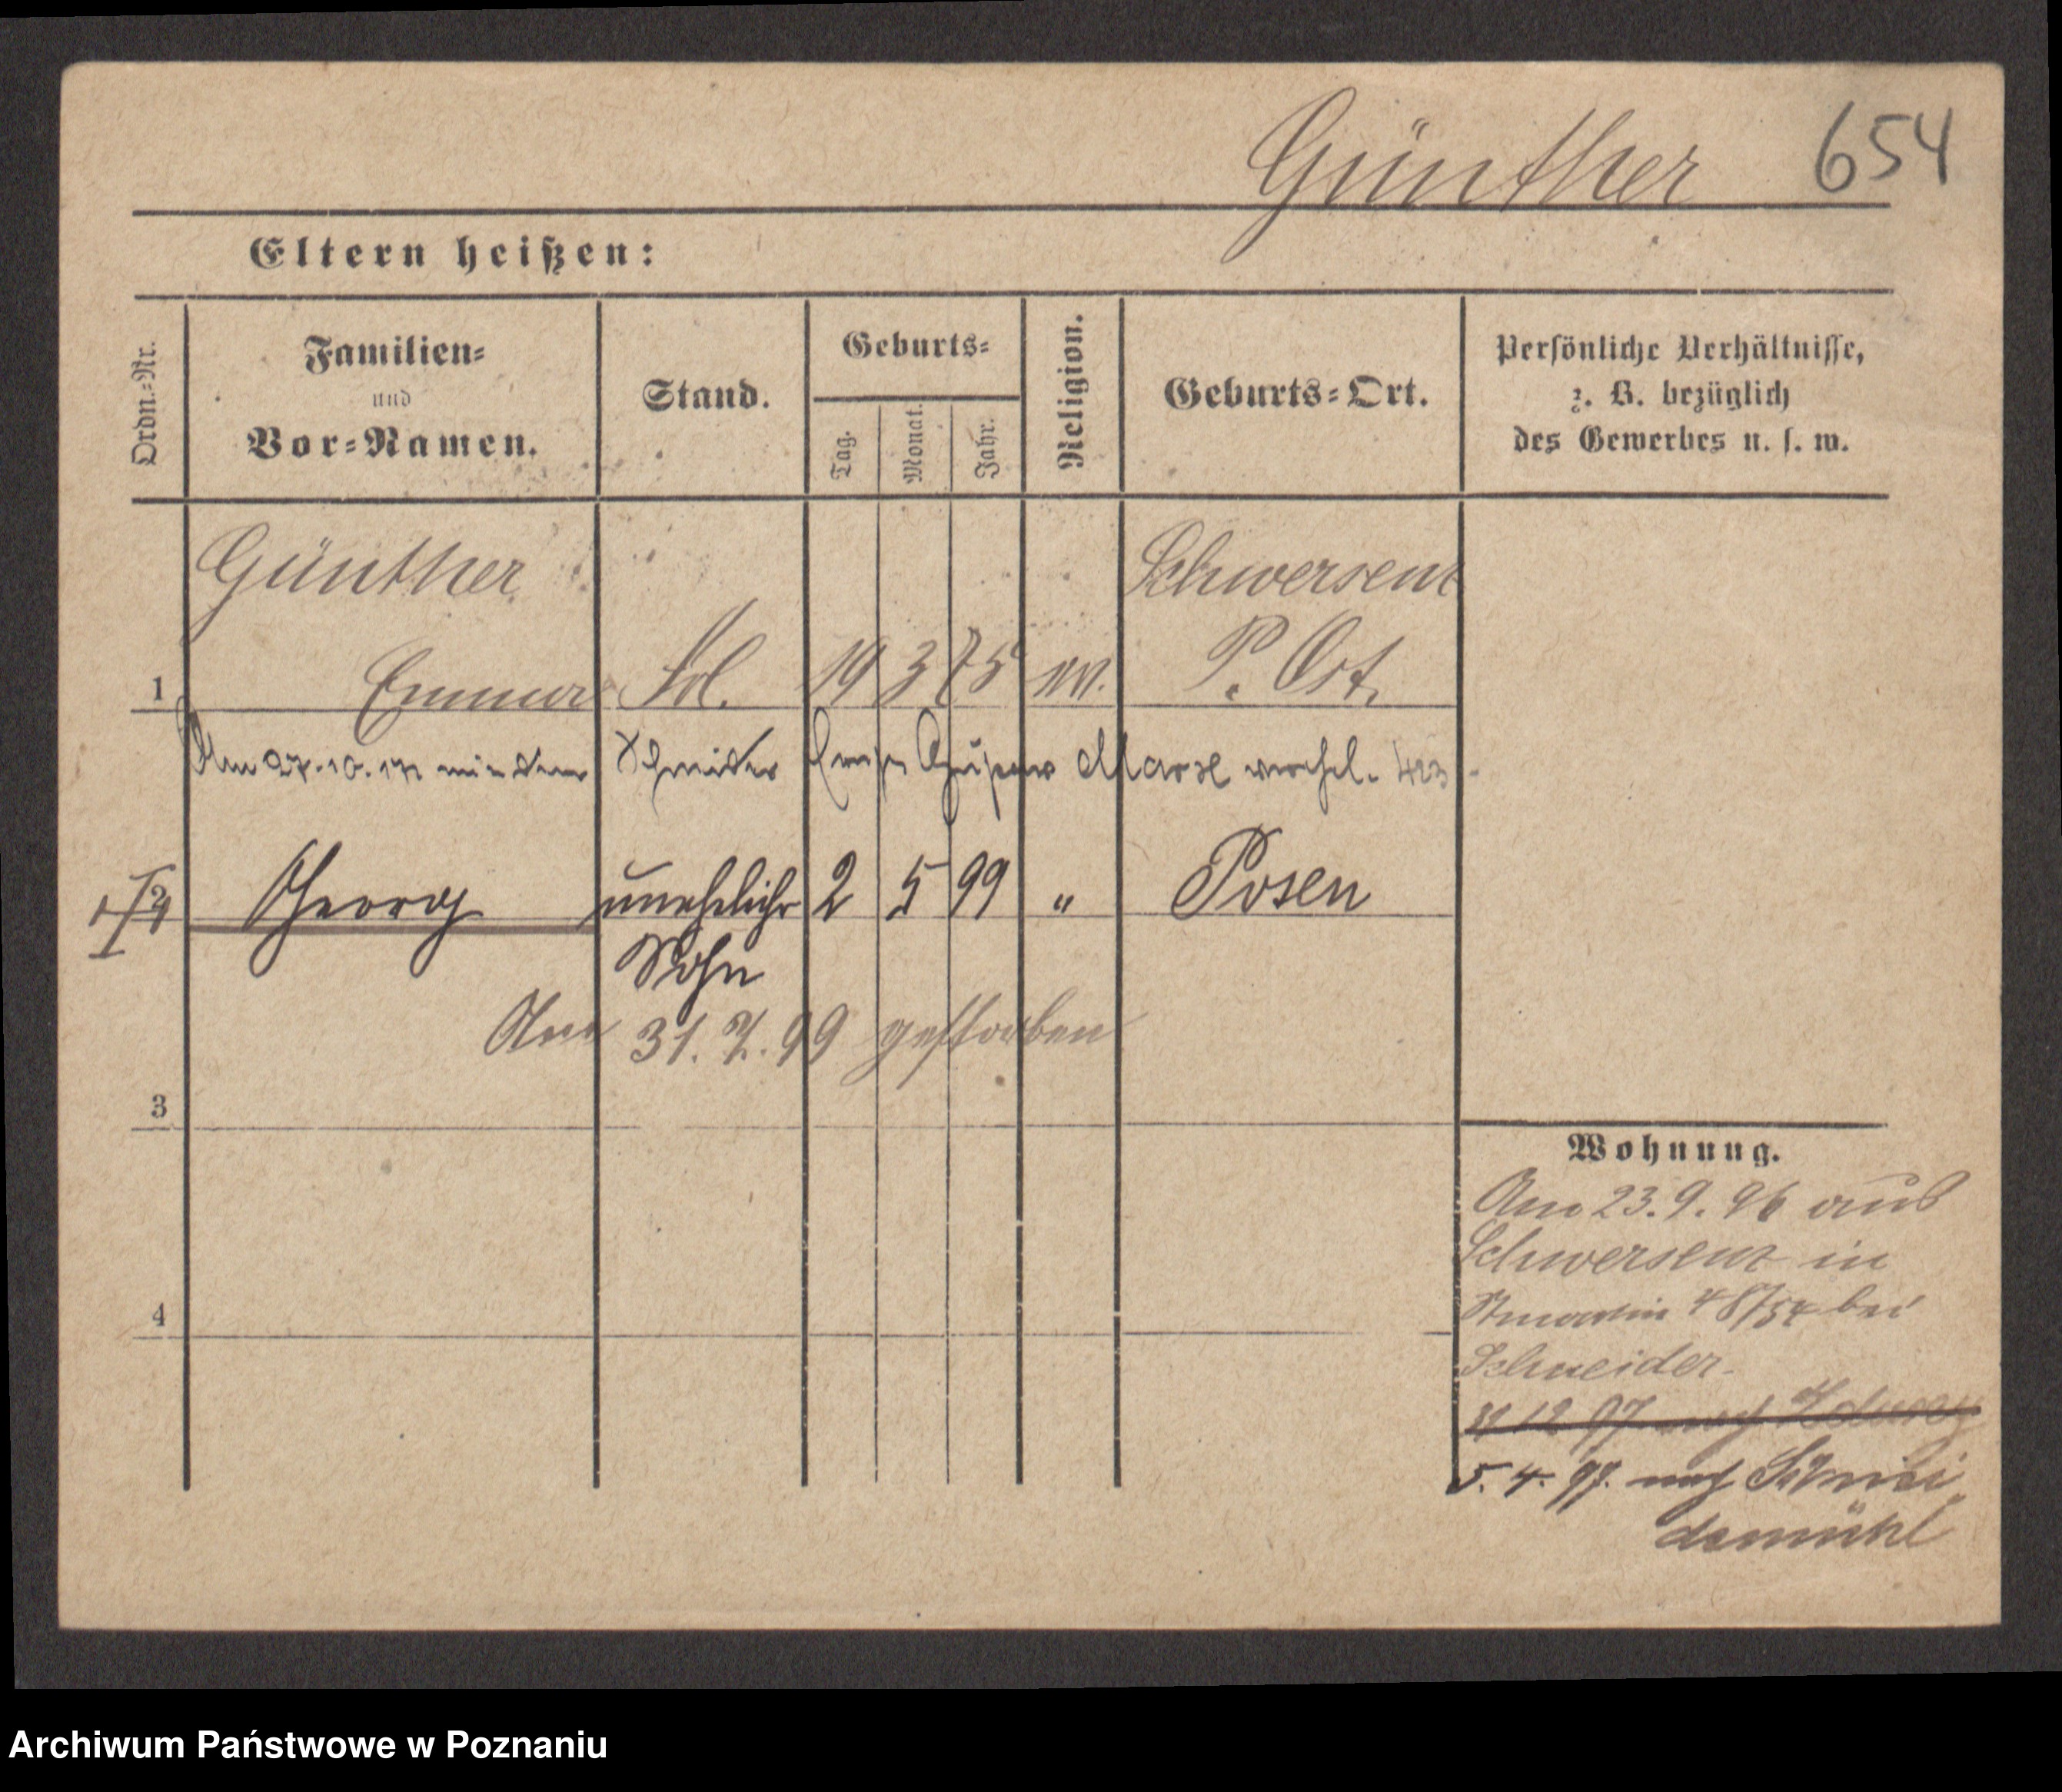 Günther 654
Eltern heißen:
Ordn.=Nr.
Familien=
und
Vor=Namen.
Stand.
Geburts=
Tag.
Monat.
Jahr.
Religion.
Geburts=Ort.
Persönliche Verhältnisse,
z. B. bezüglich
des Gewerbes u. s. w.
Günther Schwersenz
1 Emma Frl. 19 3 75 ev. P. Ost.
Am 27.10.17 mit dem Marx verehel. 423
2 Georg unehelicher 2 5 99 " Posen
Sohn
Am 31. 7. 99 gestorben
3
4
Wohnung.
Am 23. 9. 96 aus
Schwersenz in
St martin bei
Schneider.
12 97 nach
5. 4. 97. nach Schnei
demühl
Archiwum Państwowe w Poznaniu